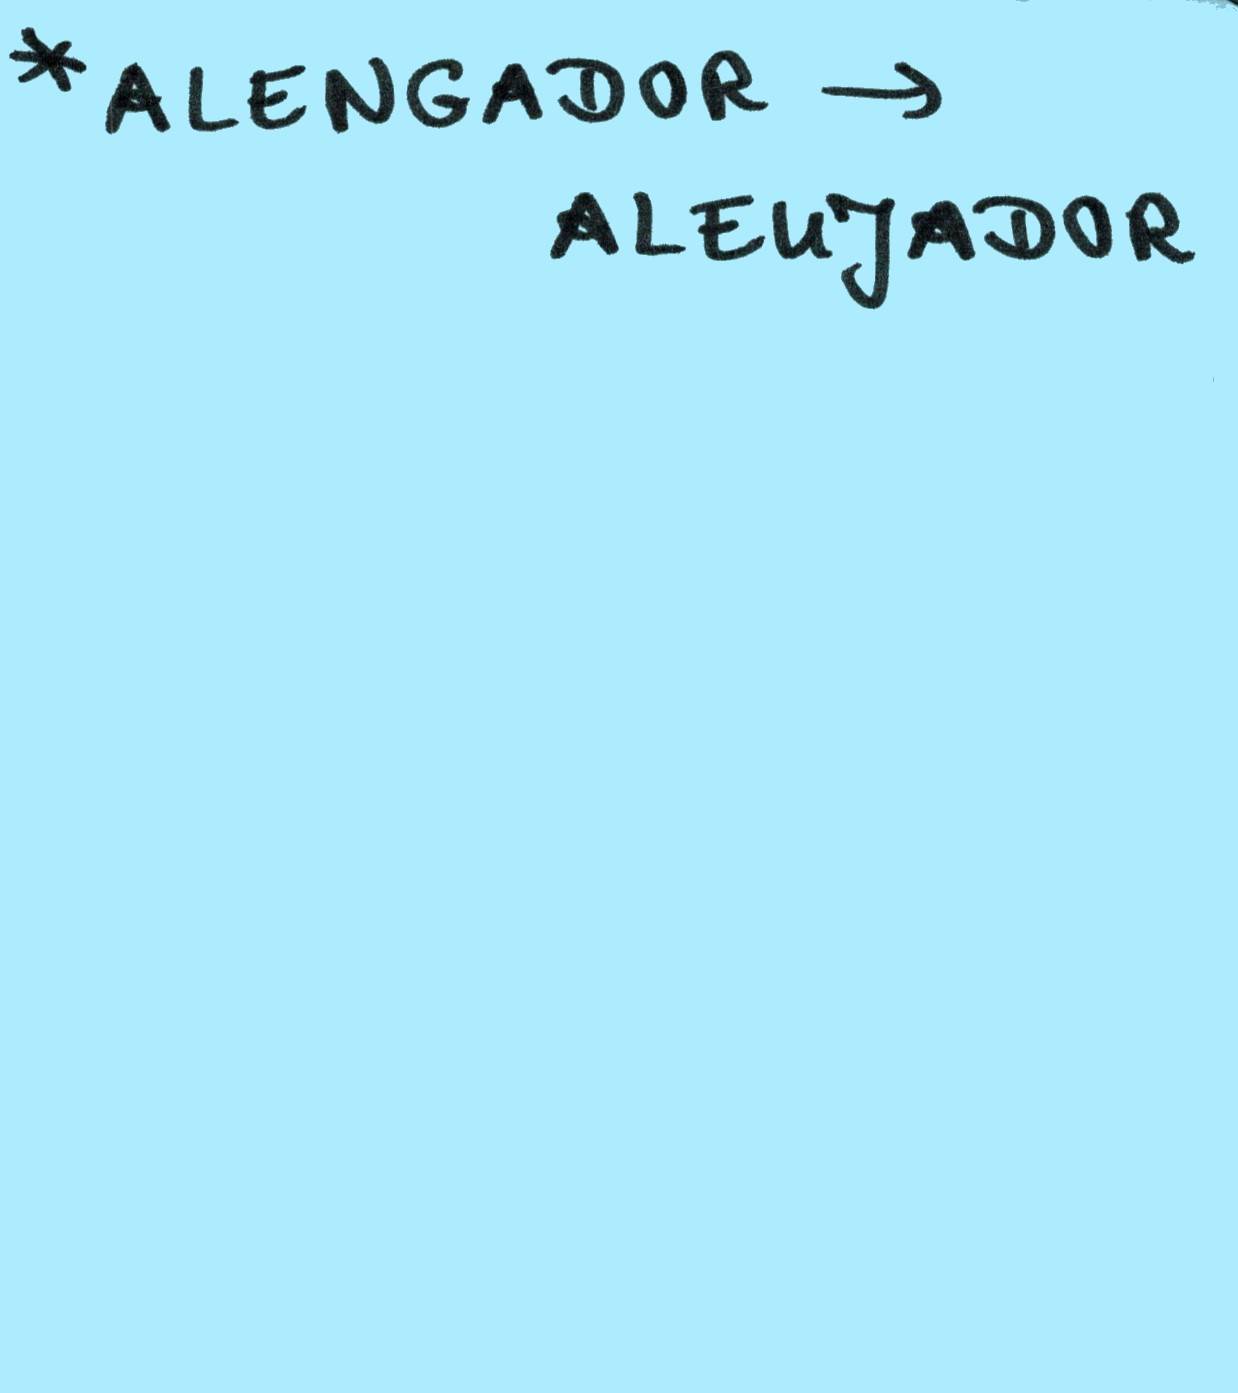 *ALENGADOR →
ALEUJADOR